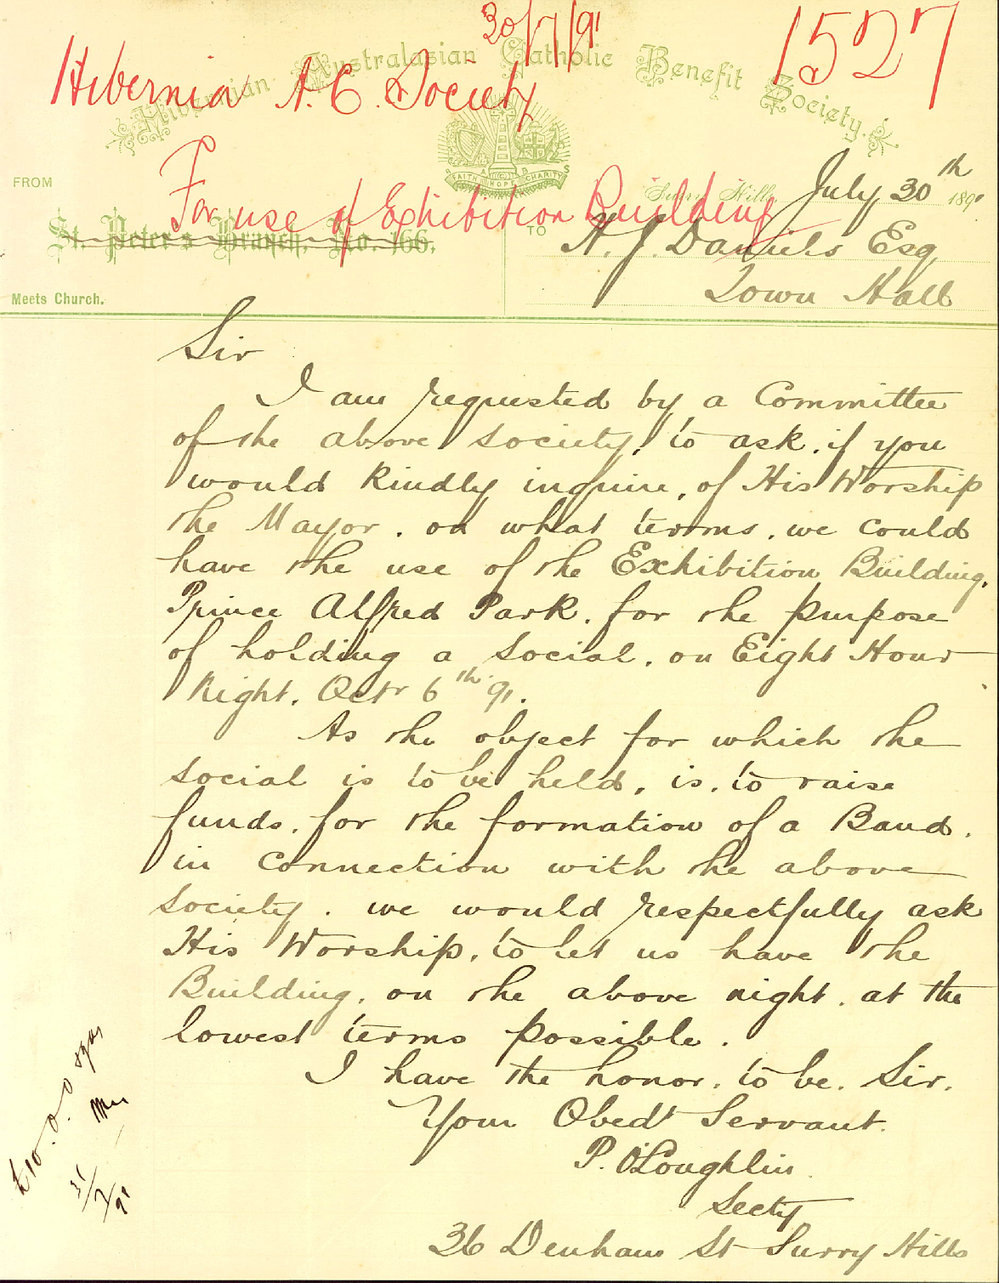 30/7/91
1527
Hibernian Australasian Catholic Benefit Society.
Hibernian A. C. Society
FAITH HOPE CHARITY
For use of Exhibition Building
FROM
Surry Hills July 30th 1891
St. Peter's Branch, No. 166.
TO H. J. Daniels Esq
Town Hall
Meets Church.
Sir
I am requested by a Committee
of the above Society, to ask, if you
would kindly inquire, of His Worship
the Mayor, on what terms, we could
have the use of the Exhibition Building,
Prince Alfred Park, for the purpose
of holding a Social, on Eight Hour
Night, Octr 6th 91.
As the object for which the
Social is to be held, is, to raise
funds, for the formation of a Band,
in connection with the above
Society, we would respectfully ask
His Worship, to let us have the
Building, on the above night, at the
lowest terms possible.
I have the honor, to be, Sir,
Your Obedt Servant.
P. O'Loughlin
Secty
36 Denham St Surry Hills
£10.0.0
31/7/91